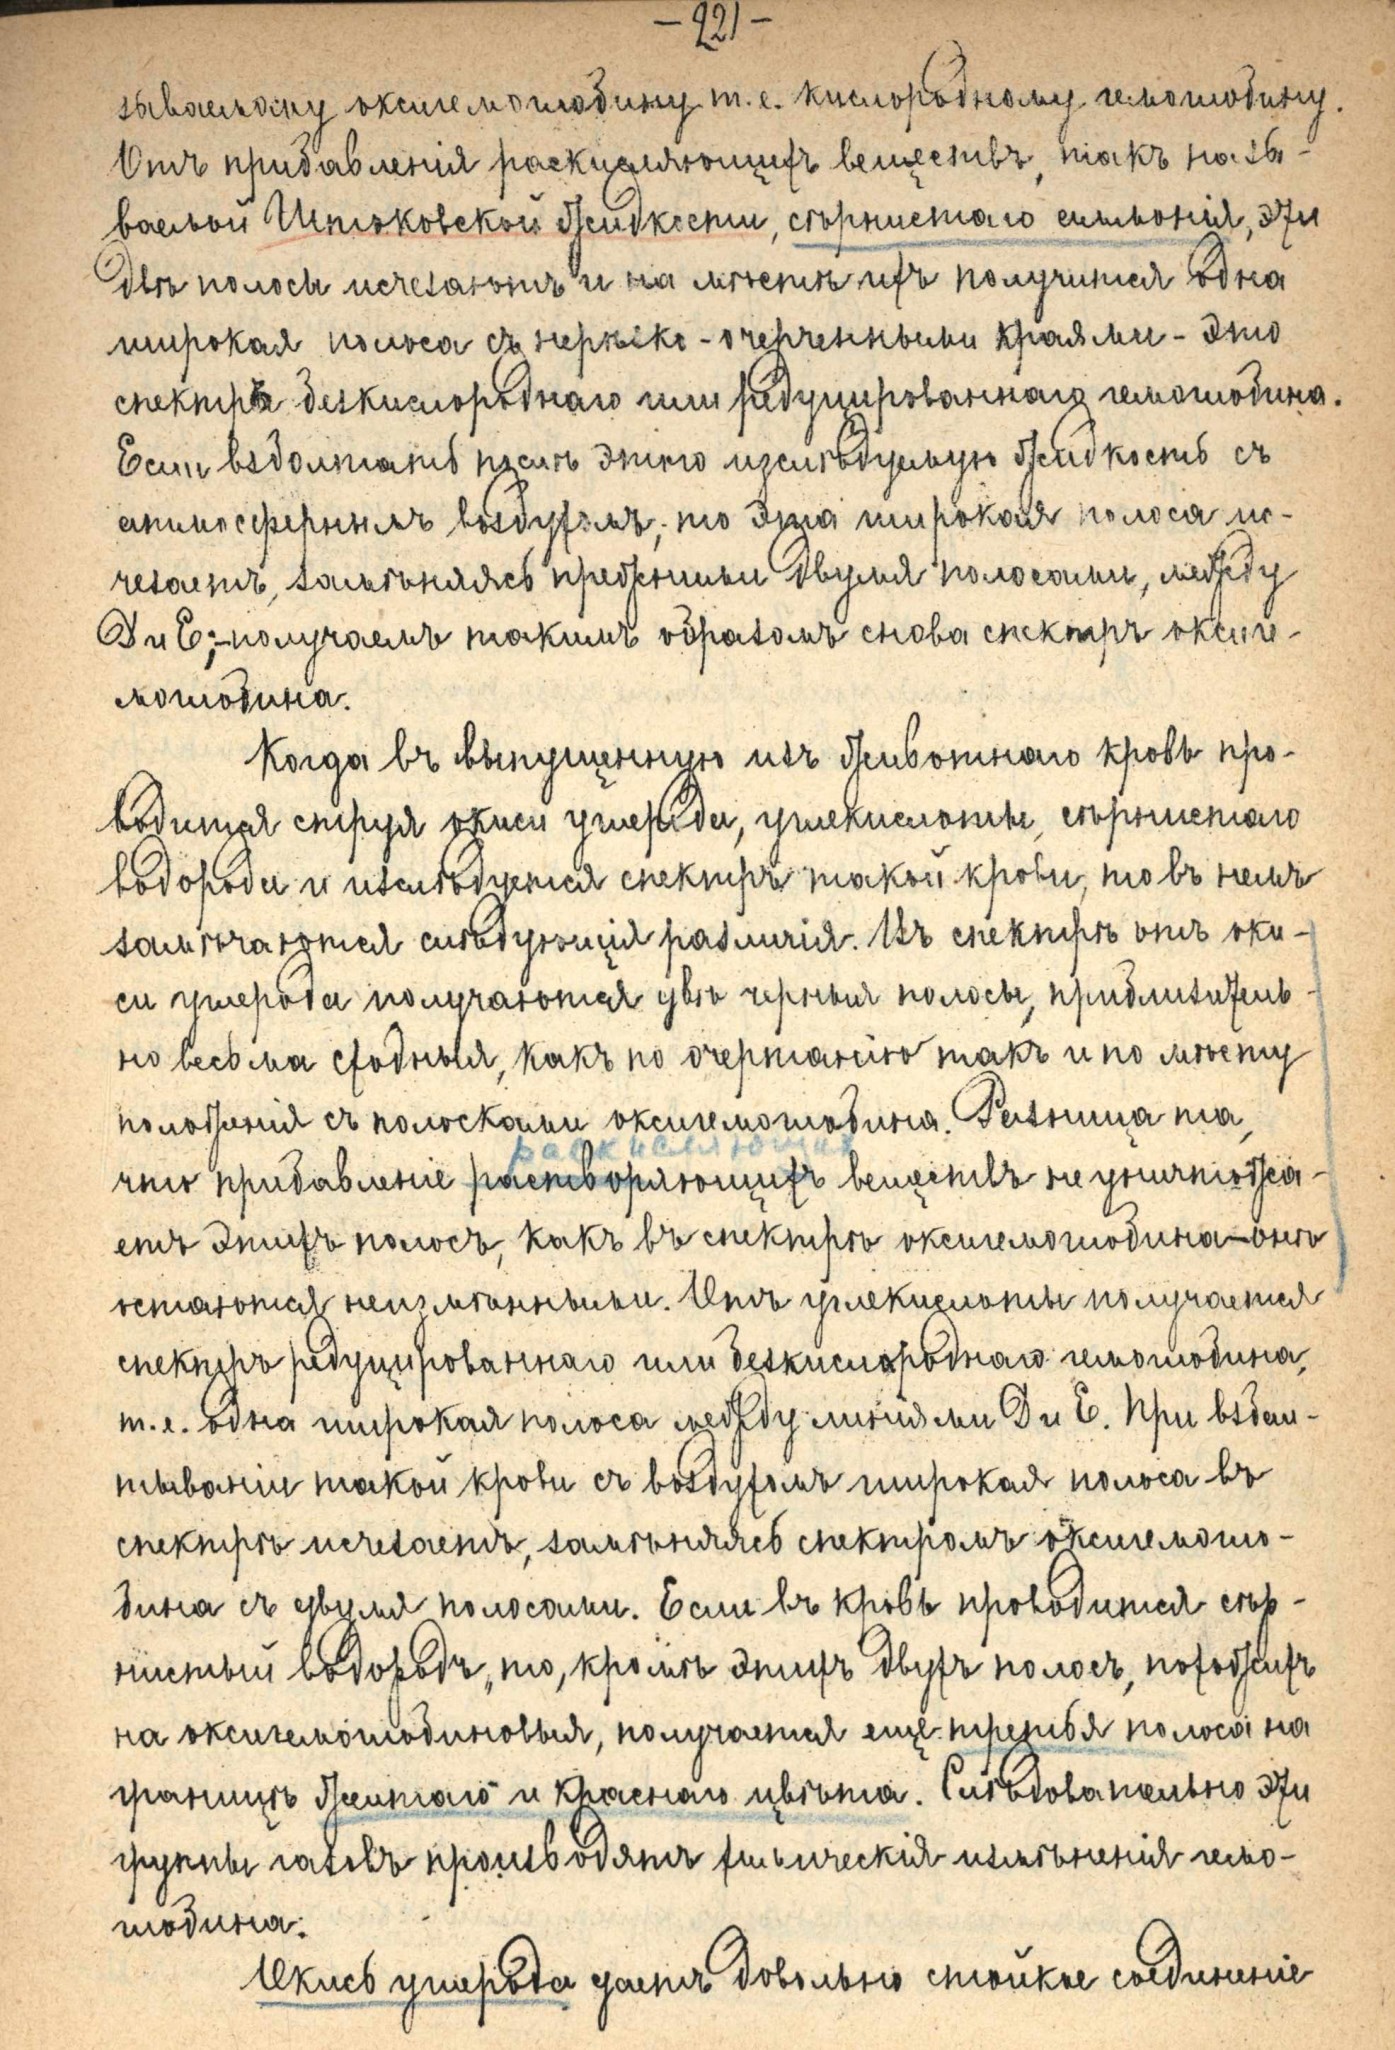 - 221 -
зываемому оксигемоглобину т.е. кислородному гемоглобину.
Отъ прибавленія раскисляющихъ веществъ, такъ назы-
ваемой Штоковской жидкости, сѣрнистаго аммонія, эти
двѣ полосы исчезаютъ и на мѣстѣ ихъ получится одна
широкая полоса съ нерѣзко-очерченными краями - это
спектръ безкислороднаго или редуцированнаго гемоглобина.
Если взболтать послѣ этого изслѣдуемую жидкость съ
атмосфернымъ воздухомъ, то эта широкая полоса ис-
чезаетъ, замѣняясь прежними двумя полосами, между
D и E; - получаемъ такимъ образомъ снова спектръ оксиге-
моглобина.
Когда въ выпущенную изъ животнаго кровь про-
водится струя окиси углерода, углекислоты, сѣрнистаго
водорода и изслѣдуется спектръ такой крови, то въ немъ
замѣчаются слѣдующія различія. Въ спектрѣ отъ оки-
си углерода получаются двѣ черныя полосы, приблизитель-
но весьма сходныя, какъ по очертанію такъ и по мѣсту
положенія съ полосками оксигемоглобина. Разница та,
раскисляющих
что прибавленіе растворяющихъ веществъ не уничтожа-
етъ этихъ полосъ, какъ въ спектрѣ оксигемоглобина - онѣ
остаются неизмѣнными. Отъ углекислоты получается
спектръ редуцированнаго или безкислороднаго гемоглобина,
т.е. одна широкая полоса между линіями D и E. При взбал-
тываніи такой крови съ воздухомъ широкая полоса въ
спектрѣ исчезаетъ, замѣняясь спектромъ оксигемогло-
бина съ двумя полосами. Если въ кровь проводится сѣр-
нистый водородъ, то, кромѣ этихъ двухъ полосъ, похожихъ
на оксигемоглобиновыя, получается еще третья полоса на
границѣ желтаго и краснаго цвѣта. Слѣдовательно эти
группы газовъ производятъ химическія измѣненія гемо-
глобина.
Окись углерода даетъ довольно стойкое соединеніе